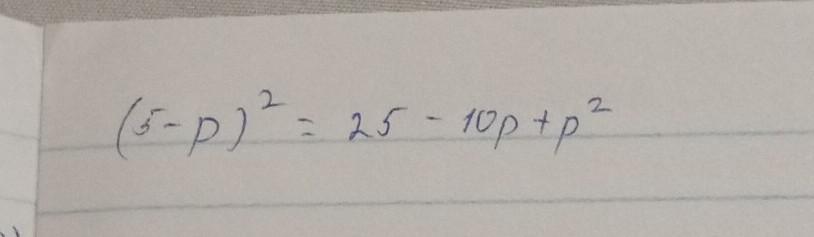 (5-p)² = 25 - 10p + p²